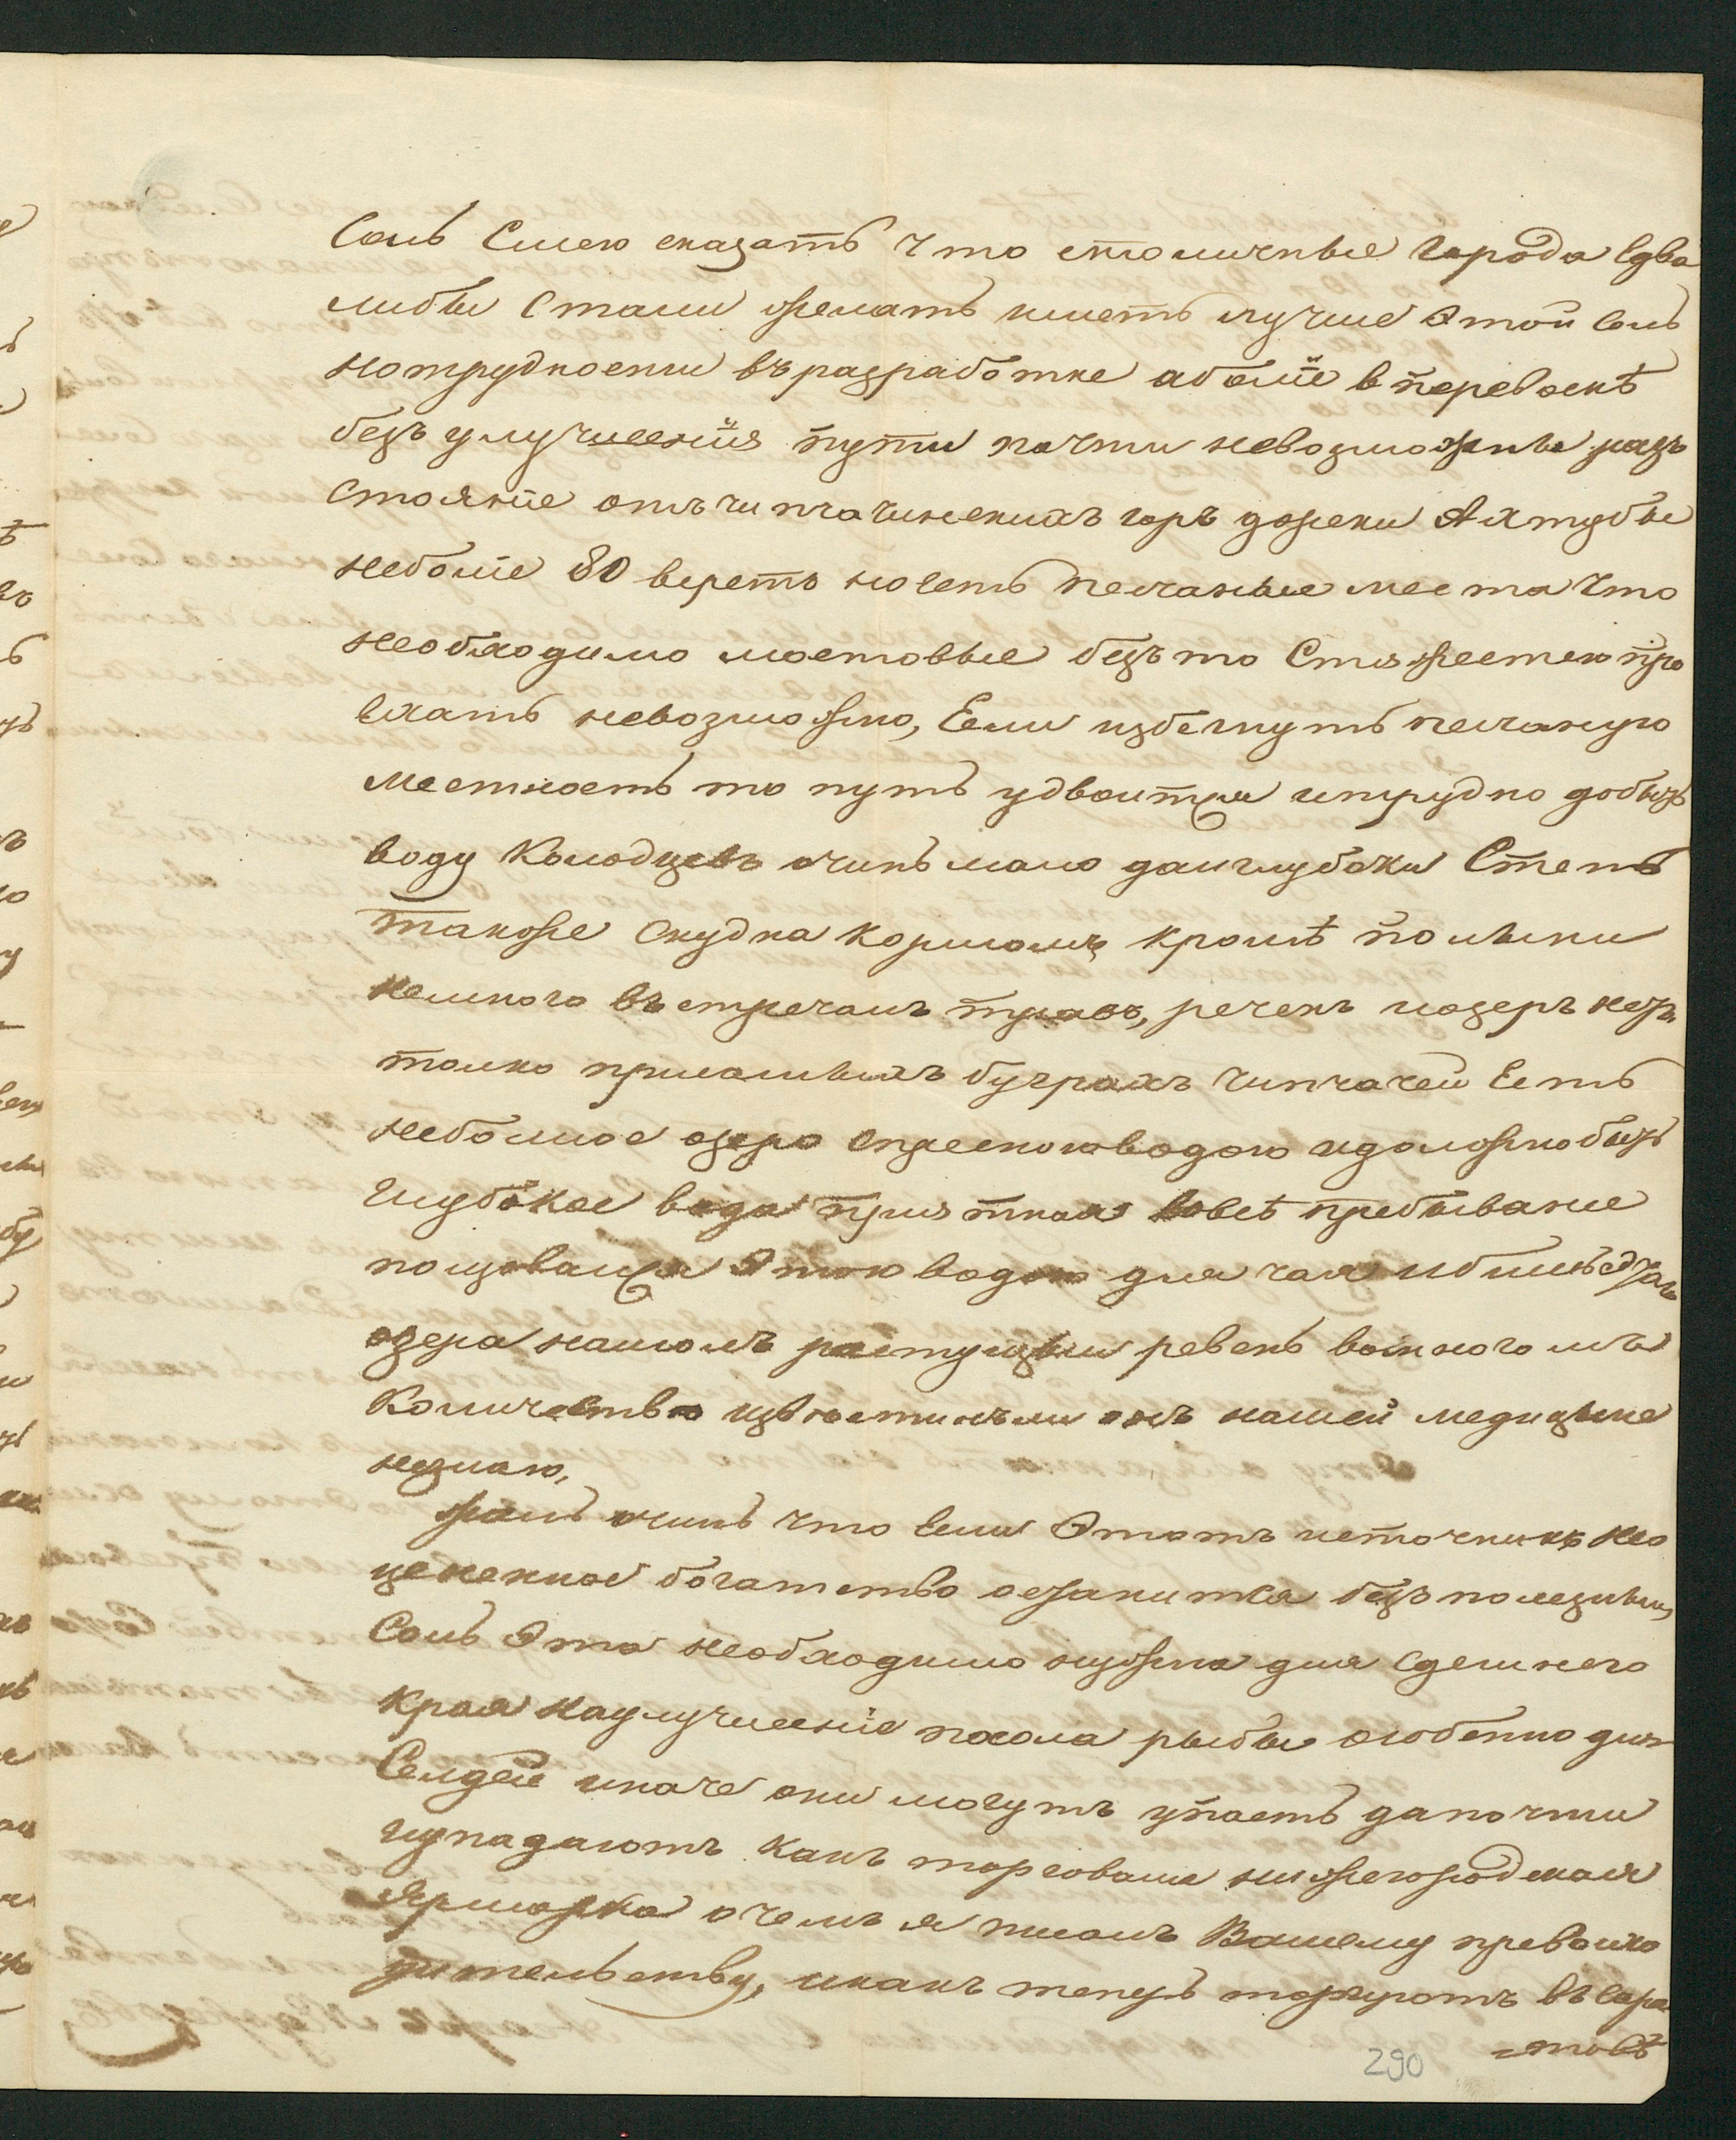 Соль Смею сказать Что столичные Города Едва
либы Стали желать иметь лучше Этой Соль
нотрудности въразработке аболіе в перевоскѣ
безъ улучшенія пути почти невозможны раз
стояніе отъ чипчачинскихъ горъ дореки Ахтубы
неболіе 80 верстъ ноесть песчаные места Что
необходимо мостовые безъто Стяжестею про
ехать невозможно, Если избегнуть песчаную
местность то путь удвоится итрудно добыть
воду Колодцевъ очинь мало даиглубоки Степь
также Скудна Кормомъ кромѣ полыни
немного въстречалъ травъ, речекъ иозеръ нетъ
толко прималыхъ буграхъ Чипчачей Есть
неболшое озеро спресноюводою идолжнобыть
Глубокое вода приятная Вовсѣ пребывание
ползовался Этою водою для чая
озера нашолъ растущим ревень вомногомъ
Количество извѣстинъли онъ нашей медицыне
незнаю,
жаль очинь что Если Этотъ источникъ нео
цененное богатство останитса безъполезным
Соль Эта необходимо нужна для сдешнего
Края наулучшеніе посола рыбы особенно для
Селдей иначе они могутъ упасть дапочти
иупадаютъ Какъ торговаля нижегородская
Ярмарка очемъ я писалъ Вашему превосхо
дительству, икакъ теперь торгуютъ въСара
=товѣ
290